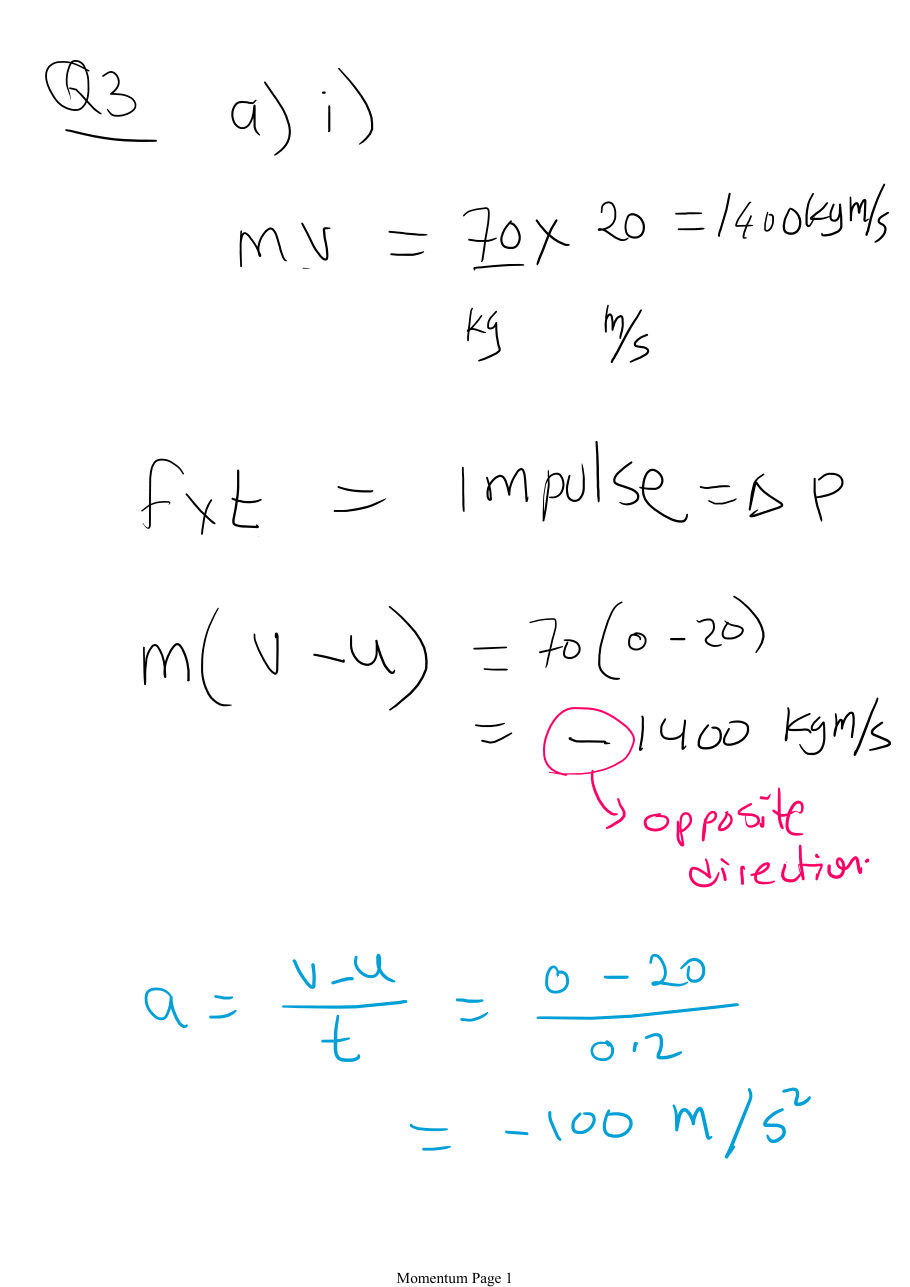 Q3 a) i)
mv = 70 x 20 = 1400 kgm/s
kg m/s
fxt = Impulse = Δ P
m( v - u) = 70(0 - 20)
= - 1400 kgm/s
opposite
direction.
a = v-u/t = 0 - 20/0.2
= -100 m/s²
Momentum Page 1